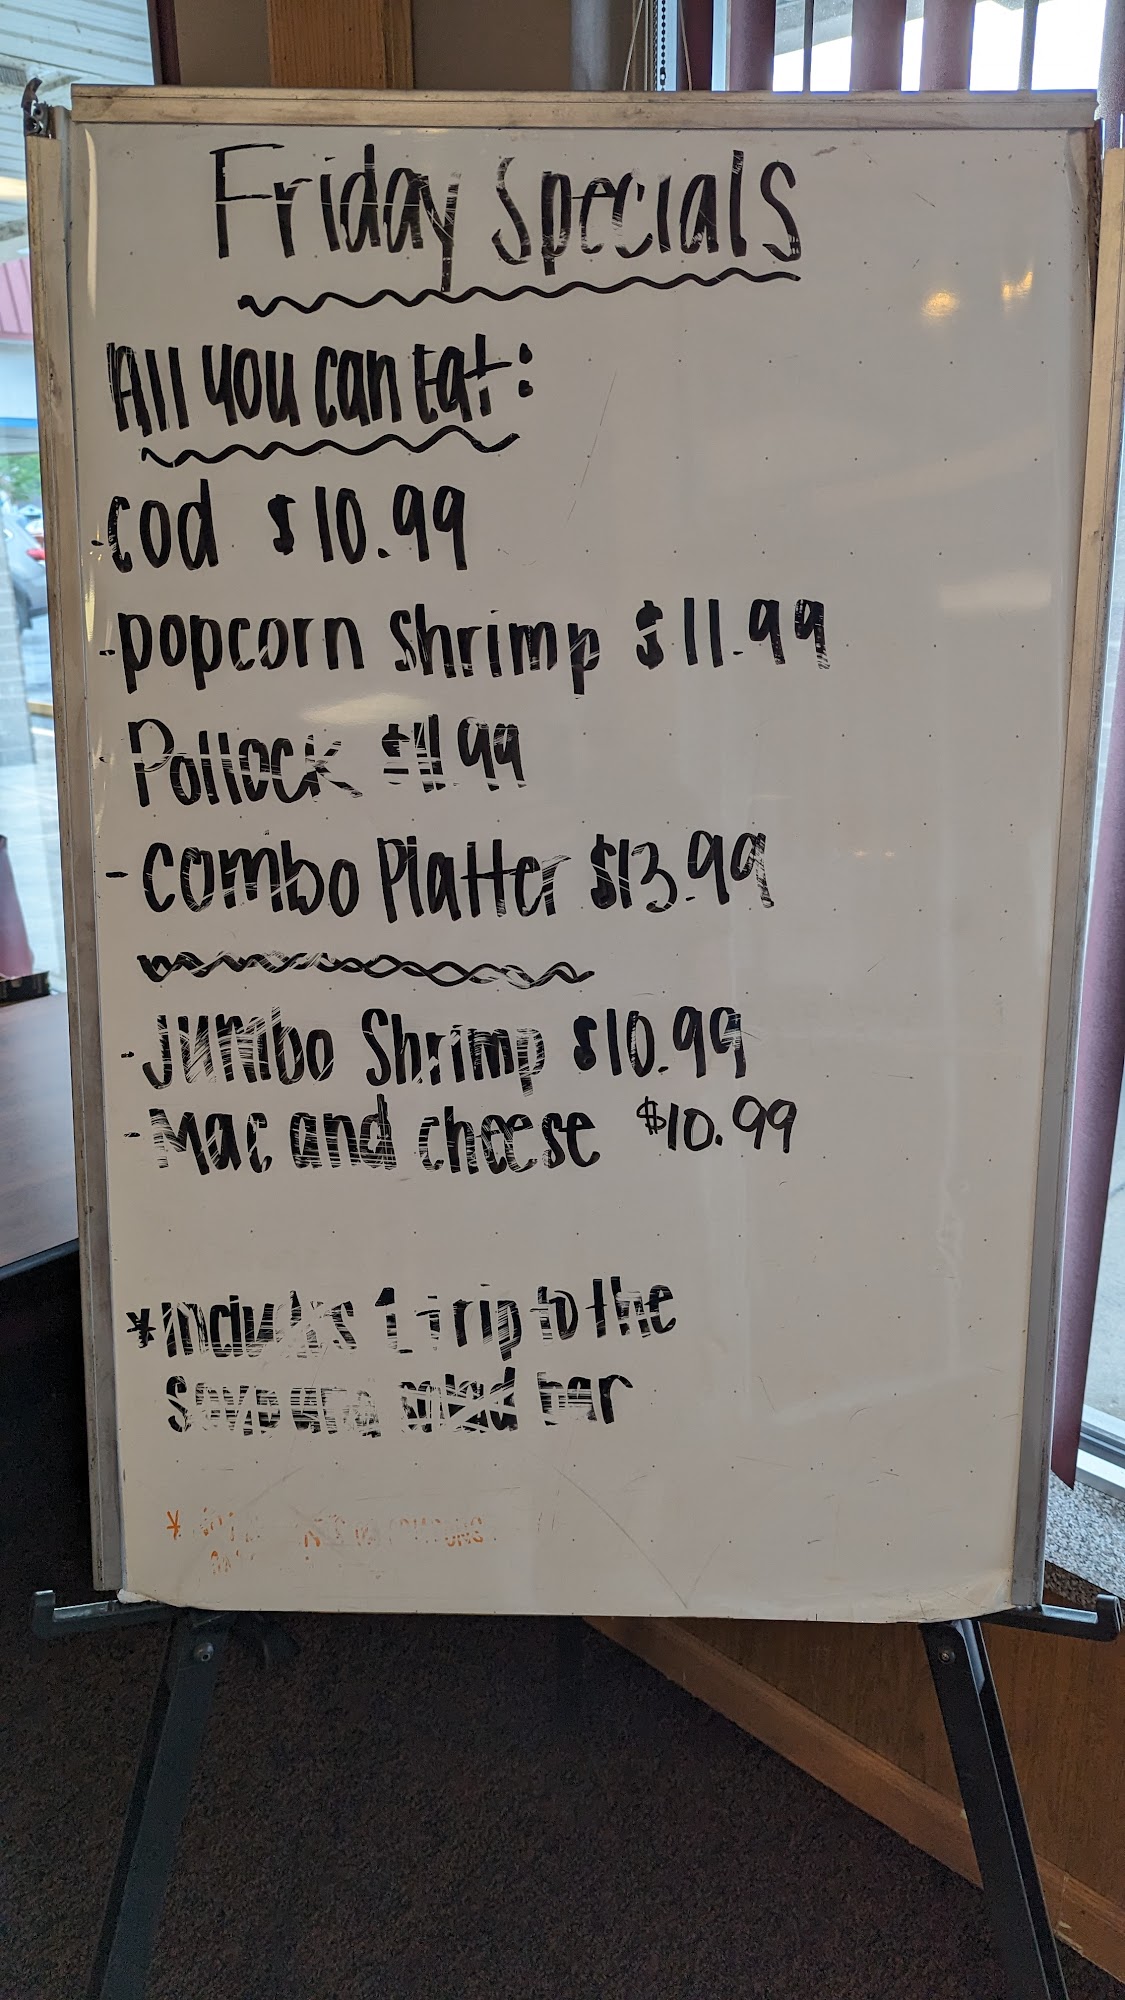 Friday Specials
All you can Eat:
-cod $10.99
-popcorn shrimp $11.99
Pollock $11.99
-Combo Platter $13.99
-Jumbo Shrimp $10.99
-Mac and cheese $10.99
*includes 1 trip to the
soup and salad bar
*